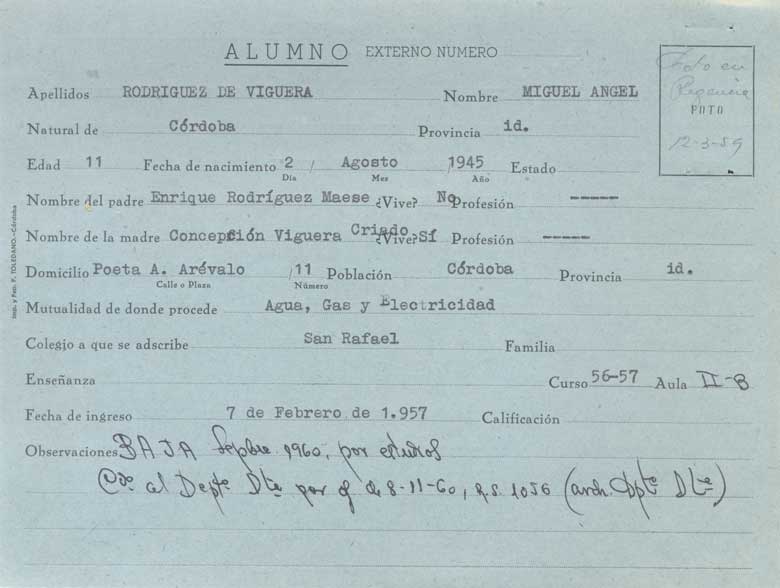 ALUMNO EXTERNO NUMERO
Foto en
Regencia
FOTO
12-3-59
Apellidos RODRIGUEZ DE VIGUERA Nombre MIGUEL ANGEL
Natural de Córdoba Provincia id.
Edad 11 Fecha de nacimiento 2 / Agosto / 1945 Estado
Día Mes Año
Nombre del padre Enrique Rodríguez Maese ¿Vive? No Profesión -----
Nombre de la madre Concepción Viguera Criado ¿Vive? Sí Profesión -----
Domicilio Poeta A. Arévalo / 11 Población Córdoba Provincia id.
Calle o Plaza Número
Mutualidad de donde procede Agua, Gas y Electricidad
Colegio a que se adscribe San Rafael Familia
Enseñanza Curso 56-57 Aula II-B
Fecha de ingreso 7 de Febrero de 1.957 Calificación
Observaciones BAJA Sepbre 1960, por estudios
al Depte Dte por of de 8-11-60, R.S. 1056 (arch. Dpte Dte)
Imp. y Pap. F. TOLEDANO.-Córdoba